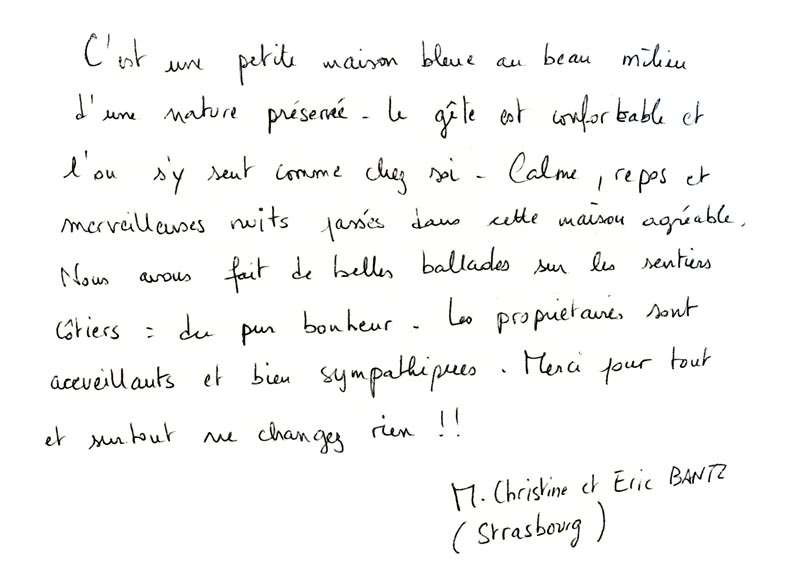 C'est une petite maison bleue au beau milieu
d'une nature préservée. Le gîte est confortable et
l'on s'y sent comme chez soi. Calme, repos et
merveilleuses nuits passés dans cette maison agréable.
Nous avons fait de belles ballades sur les sentiers
côtiers = du pur bonheur. Les propriétaires sont
acceuillants et bien sympathiques. Merci pour tout
et surtout ne changez rien !!
M. Christine et Eric BANTZ
(Strasbourg)